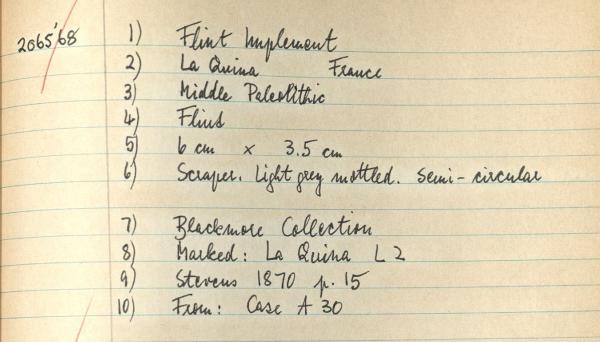 2065'68 1) Flint Implement
2) La Quina France
3) Middle Paleolithic
4) Flint
5) 6 cm x 3.5 cm
6) Scraper. Light grey mottled. Semi-circular
7) Blackmore Collection
8) Marked: La Quina L 2
9) Stevens 1870 p. 15
10) From: Case A 30